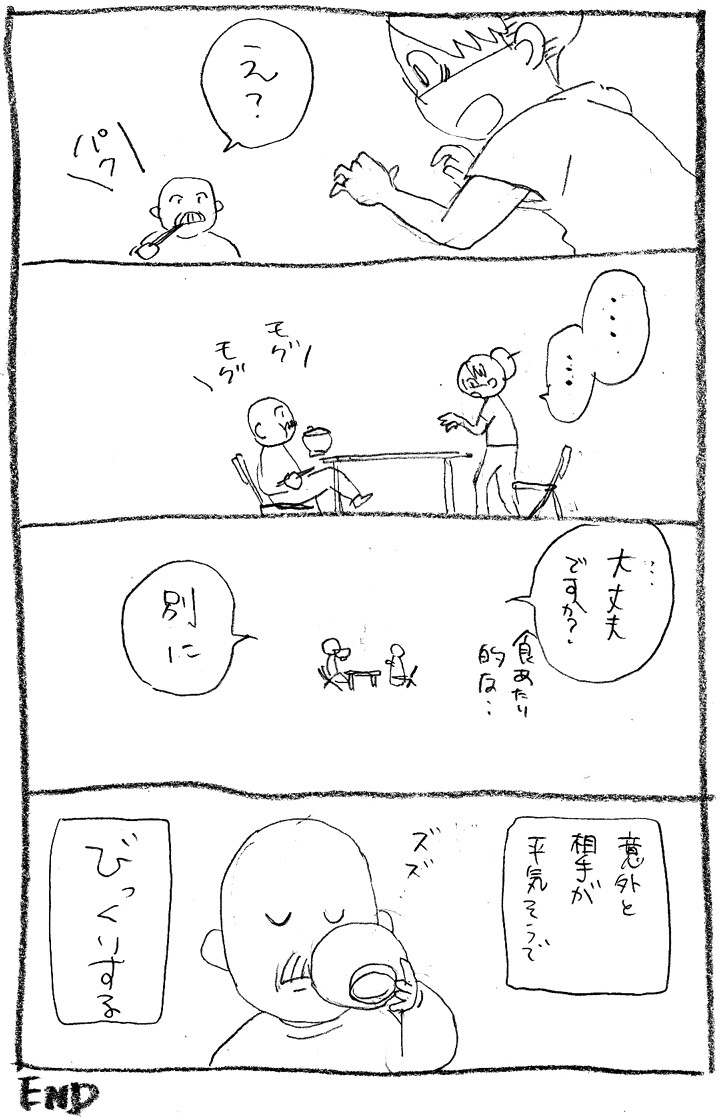 え?
パクッ
・・・
・・・
モグ
モグ
…大丈夫
ですか?
食あたり
的な…
別に
意外と
相手が
平気そうで
ズズ
びっくりする
END